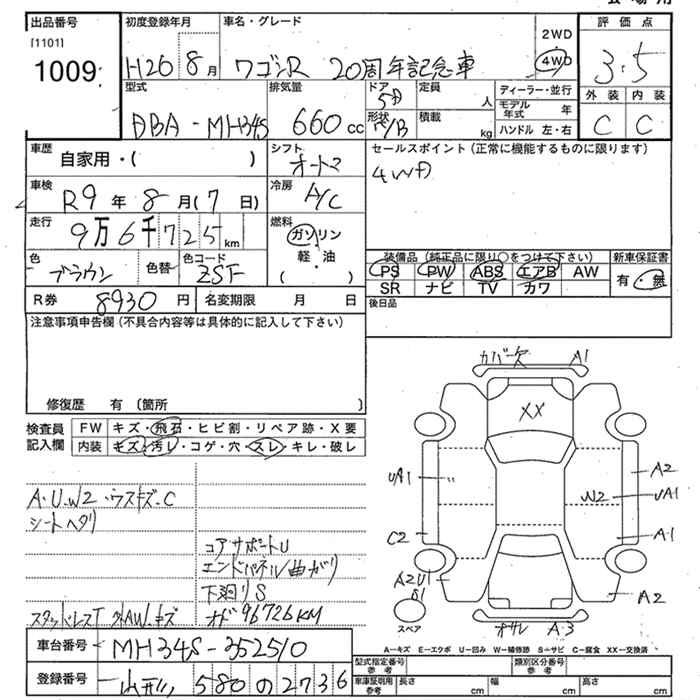 出品番号 初度登録年月 車名・グレード 評価点
[1101] 2WD
1009 H26 8月 ワゴンR 20周年記念車 4WD 3.5
型式 排気量 ドア 定員 ディーラー・並行 外装 内装
5D 人 モデル年式 年
DBA-MH34S 660cc 形状 積載 C C
V/B kg ハンドル 左・右
車歴 シフト セールスポイント(正常に機能するものに限ります)
自家用・( ) オートマ 4WD
車検 冷房
R9年8月(7日) A/C
走行 燃料
9万6千725km ガソリン
軽・油
色 色替 色コード ( ) 装備品(純正品に限り○をつけて下さい) 新車保証書
ブラウン ZSF PS PW ABS エアB AW 有・無
SR ナビ TV カワ
R券 8930円 名変期限 月 日 後日品
注意事項申告欄(不具合内容等は具体的に記入して下さい)
修復歴 有(箇所 )
検査員記入欄 FW キズ・飛石・ヒビ割・リペア跡・X要
内装 キズ・汚レ・コゲ・穴・スレ・キレ・破レ
A.U.W2.ウスキズ.C
シートヘタリ
コアサポートU
エンドパネル曲ガリ
下廻りS
スタッドレスT AW.キズ オド96726KM
カバー欠 A1
XX
UA1 A2
W2 UA1
C2 A1
A2U1
S1 A2
スペア オサレ A3
A−キズ E−エクボ U−凹み W−補修跡 S−サビ C−腐食 XX−交換済
車台番号 MH34S-352510
型式指定番号 参考 類別区分番号 参考
登録番号 山形 580 の 2736
車庫証明用 参考 長さ cm 幅 cm 高さ cm